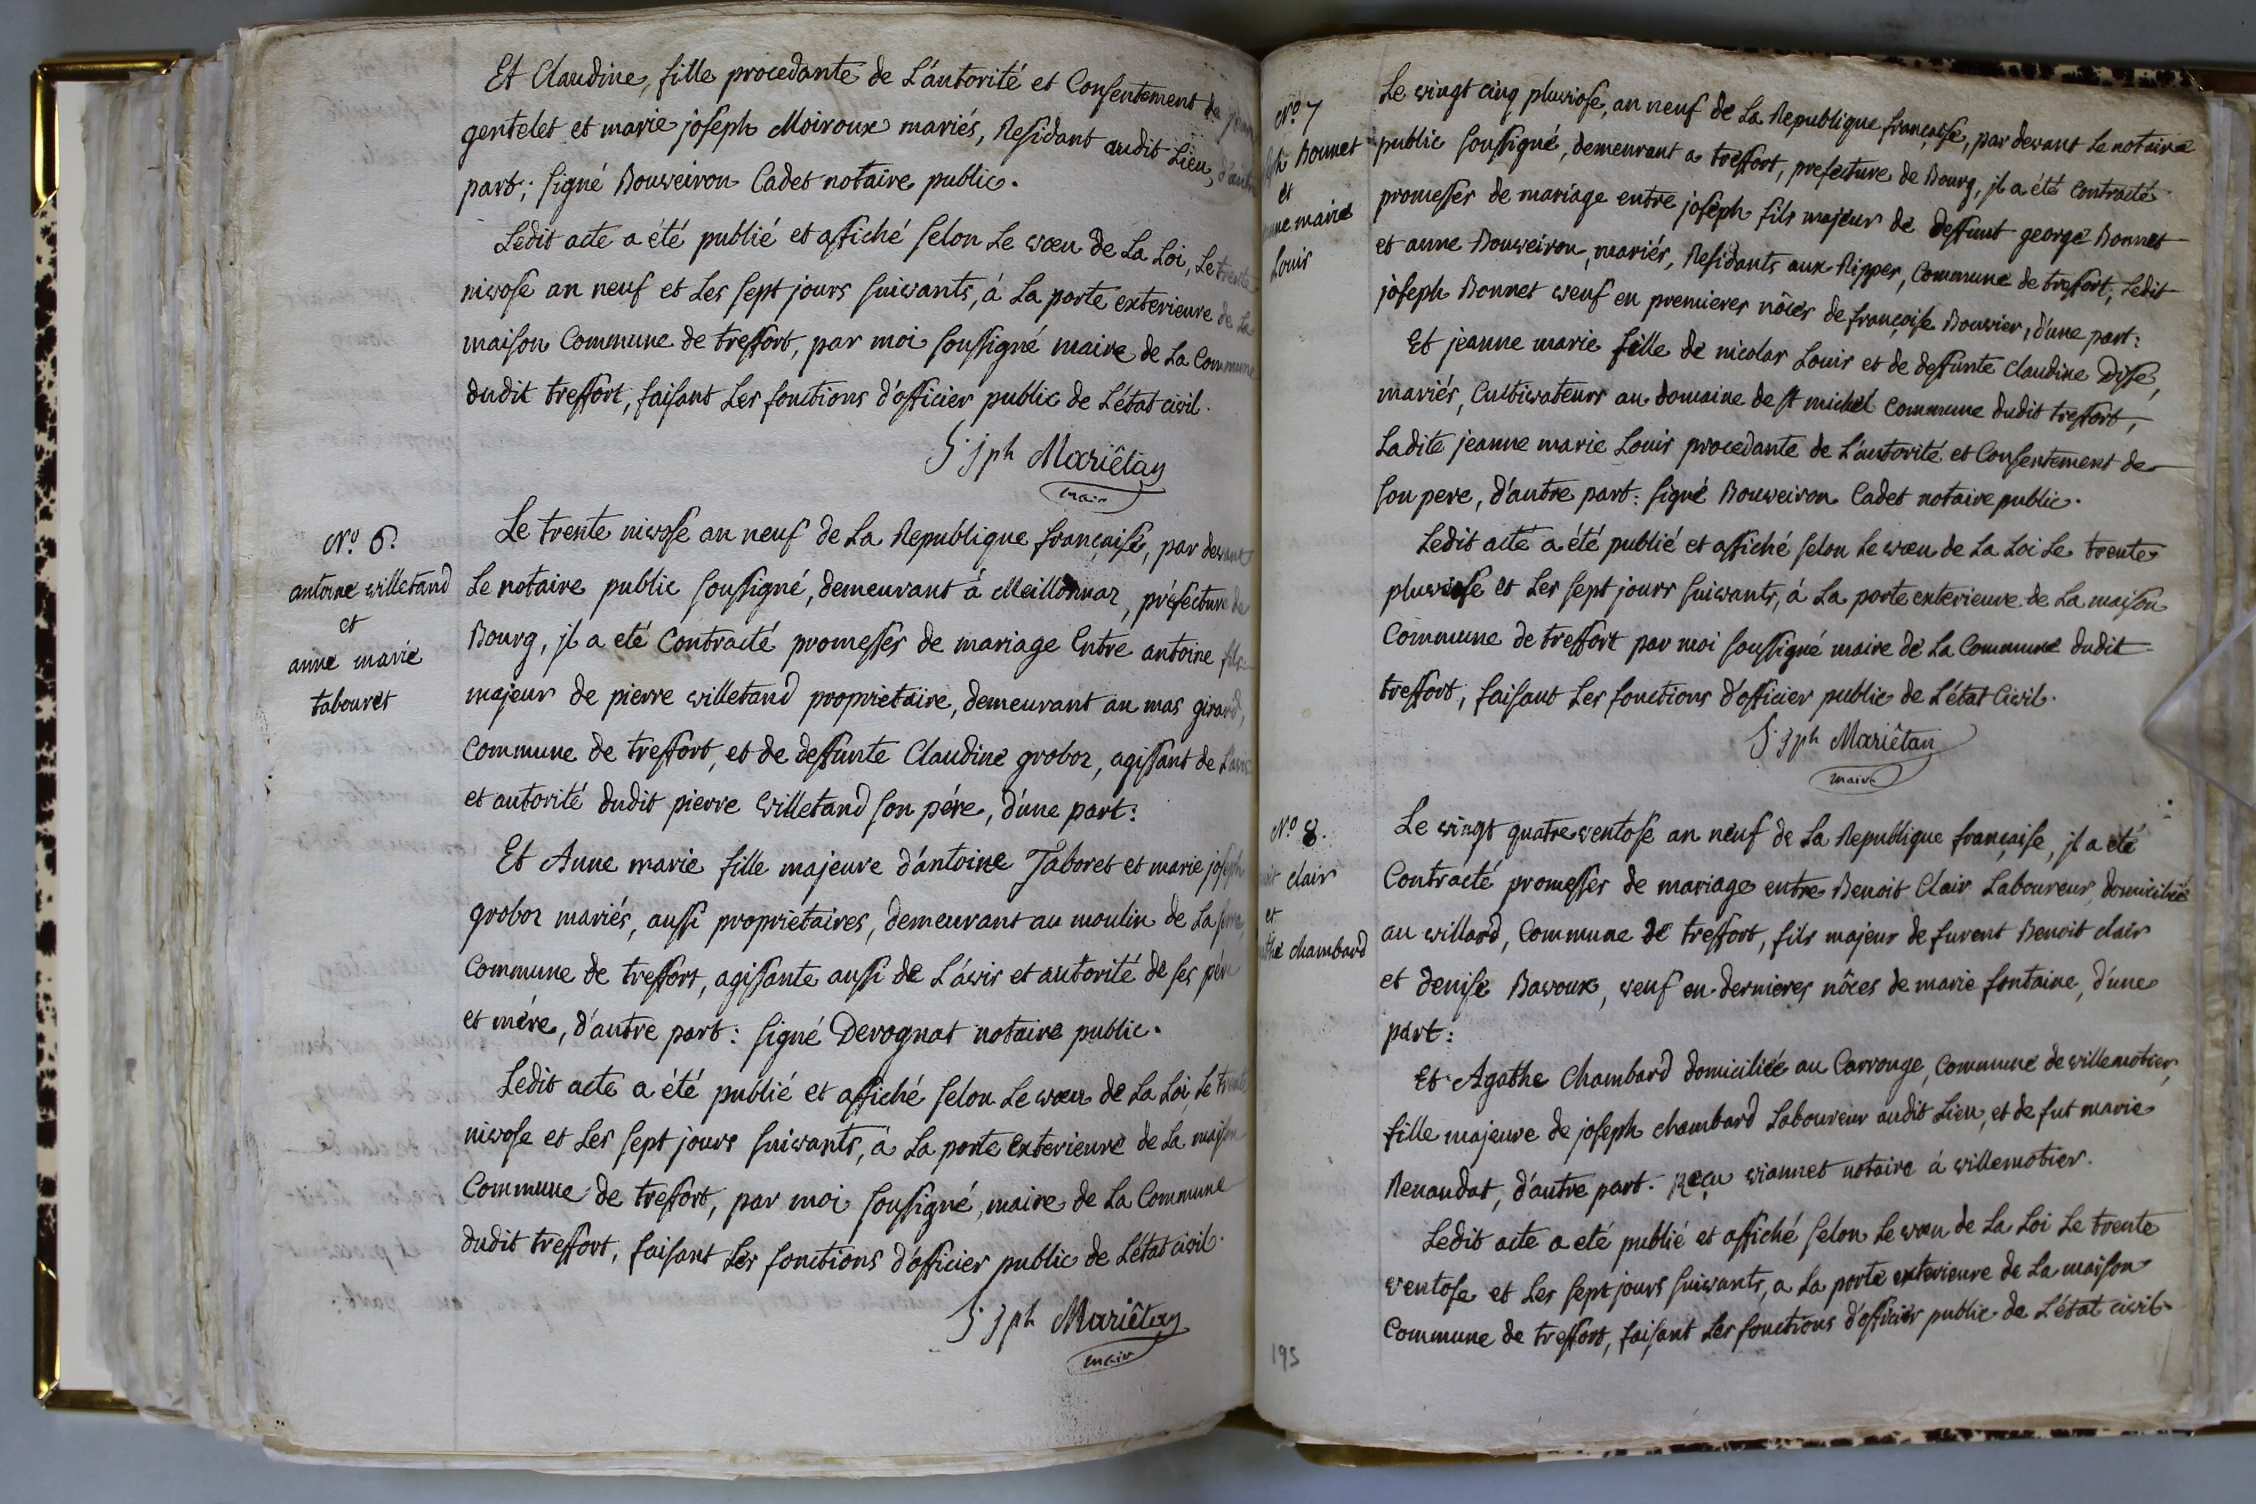 Et Claudine, fille procedante de L'autorité et Consentement de jean
gentelet et marie joseph Moiroux mariés, Residant audit Lieu, d'autre
part; signé Bouveiron Cadet notaire public.
Ledit acte a été publié et affiché selon Le vœu de La Loi, Le trente
nivose an neuf et Les sept jours suivants, á La porte exterieure de La
maison Commune de treffort, par moi soussigné maire de La Commune
dudit treffort, faisant Les fonctions d'officier public de L'état civil.
jph Mariêtan
maire
N.º 6.
antoine villetand
et
anne marie
tabouret
Le trente nivose an neuf de La Republique française, par devant
Le notaire public soussigné, demeurant á Meillonnaz, préfecture de
Bourg, jl a eté Contracté promesses de mariage Entre antoine fils
majeur de pierre villetand proprietaire, demeurant au mas girard,
Commune de treffort, et de deffunte Claudine groboz, agissant de L'avis
et autorité dudit pierre villetand son pére, d'une part:
Et Anne marie fille majeure d'antoine Taboret et marie joseph
groboz mariés, aussi proprietaires, demeurant au moulin de La serra,
Commune de treffort, agissante aussi de L'ávis et autorité de ses pére
et mére, d'autre part: signé Derognat notaire public.
Ledit acte a été publié et affiché selon Le vœu de La Loi, Le trente
nivose et Les sept jours suivants, á La porte Exterieure de La maison
Commune de treffort, par moi soussigné, maire de La Commune
dudit treffort, faisant Les fonctions d'officier public de L'état civil.
jph Mariêtan
maire
Nº 7
Bonnet
et
marie
Louis
Le vingt cinq pluviose, an neuf de La Republique française, par devant Le notaire
public soussigné, demeurant a treffort, prefecture de Bourg, jl a été Contracté
promesses de mariage entre joseph fils majeur de deffunt george Bonnet
et anne Bouveiron, mariés, Residants aux Rippes, Commune de treffort, Ledit
joseph Bonnet veuf en premieres nôces de françoise Bouvier, d'une part:
Et jeanne marie fille de nicolas Louis et de deffunte Claudine Disse,
mariés, Cultivateurs au domaine de st michel Commune dudit treffort,
Ladite jeanne marie Louis procedante de L'autorité et Consentement de
son pere, d'autre part: signé Bouveiron Cadet notaire public.
Ledit acte a été publié et affiché selon Le vœu de La Loi Le trente
pluviose et Les sept jours suivants, á La porte exterieure de La maison
Commune de treffort par moi soussigné maire de La Commune dudit
treffort, faisant Les fonctions d'officier public de L'état Civil.
jph Mariêtan
maire
Nº 8.
clair
et
chambard
Le vingt quatre ventose an neuf de La Republique française, jl a eté
Contracté promesses de mariage entre Benoit Clair Laboureur, domicilié
au villard, Commune de treffort, fils majeur de furent Benoit clair
et denise Bavoux, veuf en dernieres nôces de marie fontaine, d'une
part:
Et Agathe Chambard domiciliée au Carrouge, Commune de villemotier,
fille majeure de joseph chambard Laboureur audit Lieu, et de fut marie
Renaudat, d'autre part. Reçu viannet notaire á villemotier.
Ledit acte a eté publié et affiché selon Le vœu de La Loi Le trente
ventose et Les sept jours suivants, a La porte exterieure de La maison
Commune de treffort, faisant Les fonctions d'officier public de L'état civil
195